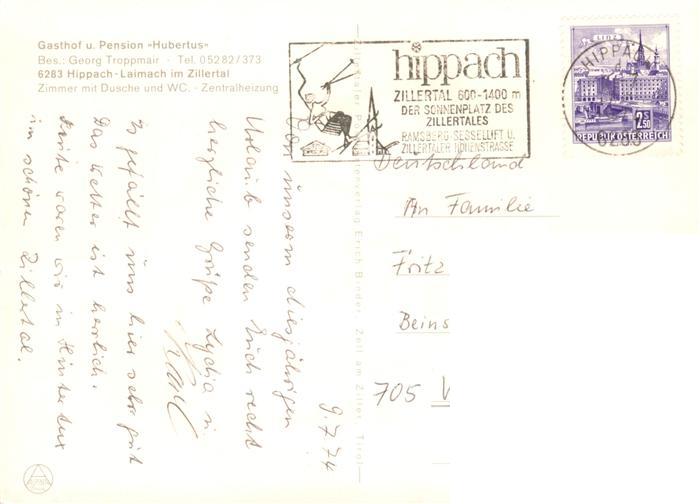 Gasthof u. Pension »Hubertus«
Bes.: Georg Troppmair · Tel. 05282/373
6283 Hippach-Laimach im Zillertal
Zimmer mit Dusche und WC. - Zentralheizung
hippach
ZILLERTAL 600-1400 m
DER SONNENPLATZ DES
ZILLERTALES
RAMSBERG-SESSELLIFT U.
ZILLERTALER HÖHENSTRASSE
LINZ
HIPPACH
6283
2.50
S
REPUBLIK ÖSTERREICH
9.7.74
Von unserem diesjährigen
Urlaube senden Euch recht
herzliche Grüße Lydia u.
Karl
Es gefällt uns hier sehr gut
Das Wetter ist herrlich.
Heute waren wir in Hintertux
im schönen Zillertal.
Tiroler Kunstverlag Erich Binder, Zell am Ziller, Tirol
Deutschland
An Familie
Fritz
Beins
705 W